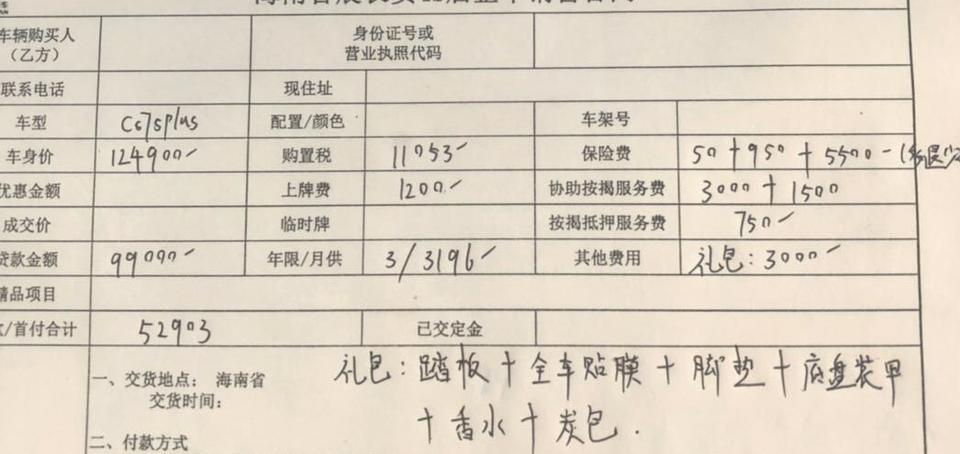 车辆购买人
（乙方）
身份证号或
营业执照代码
联系电话 现住址
车型 Cs75plus 配置/颜色 车架号
车身价 124900 购置税 11053 保险费 50+950+5500-(多退少
优惠金额 上牌费 1200 协助按揭服务费 3000+1500
成交价 临时牌 按揭抵押服务费 750
贷款金额 99000 年限/月供 3/3196 其他费用 礼包：3000
精品项目
/首付合计 52903 已交定金
礼包：踏板+全车贴膜+脚垫+底盘装甲
+香水+炭包.
一、交货地点：海南省
交货时间：
二、付款方式